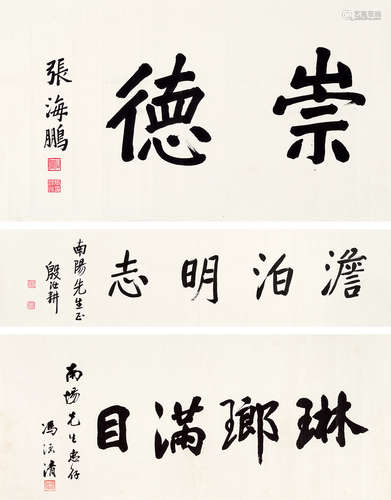 崇德
張海鵬
澹泊明志
南陽先生正
殷汝耕
琳瑯滿目
南陽先生惠存
馮涘清